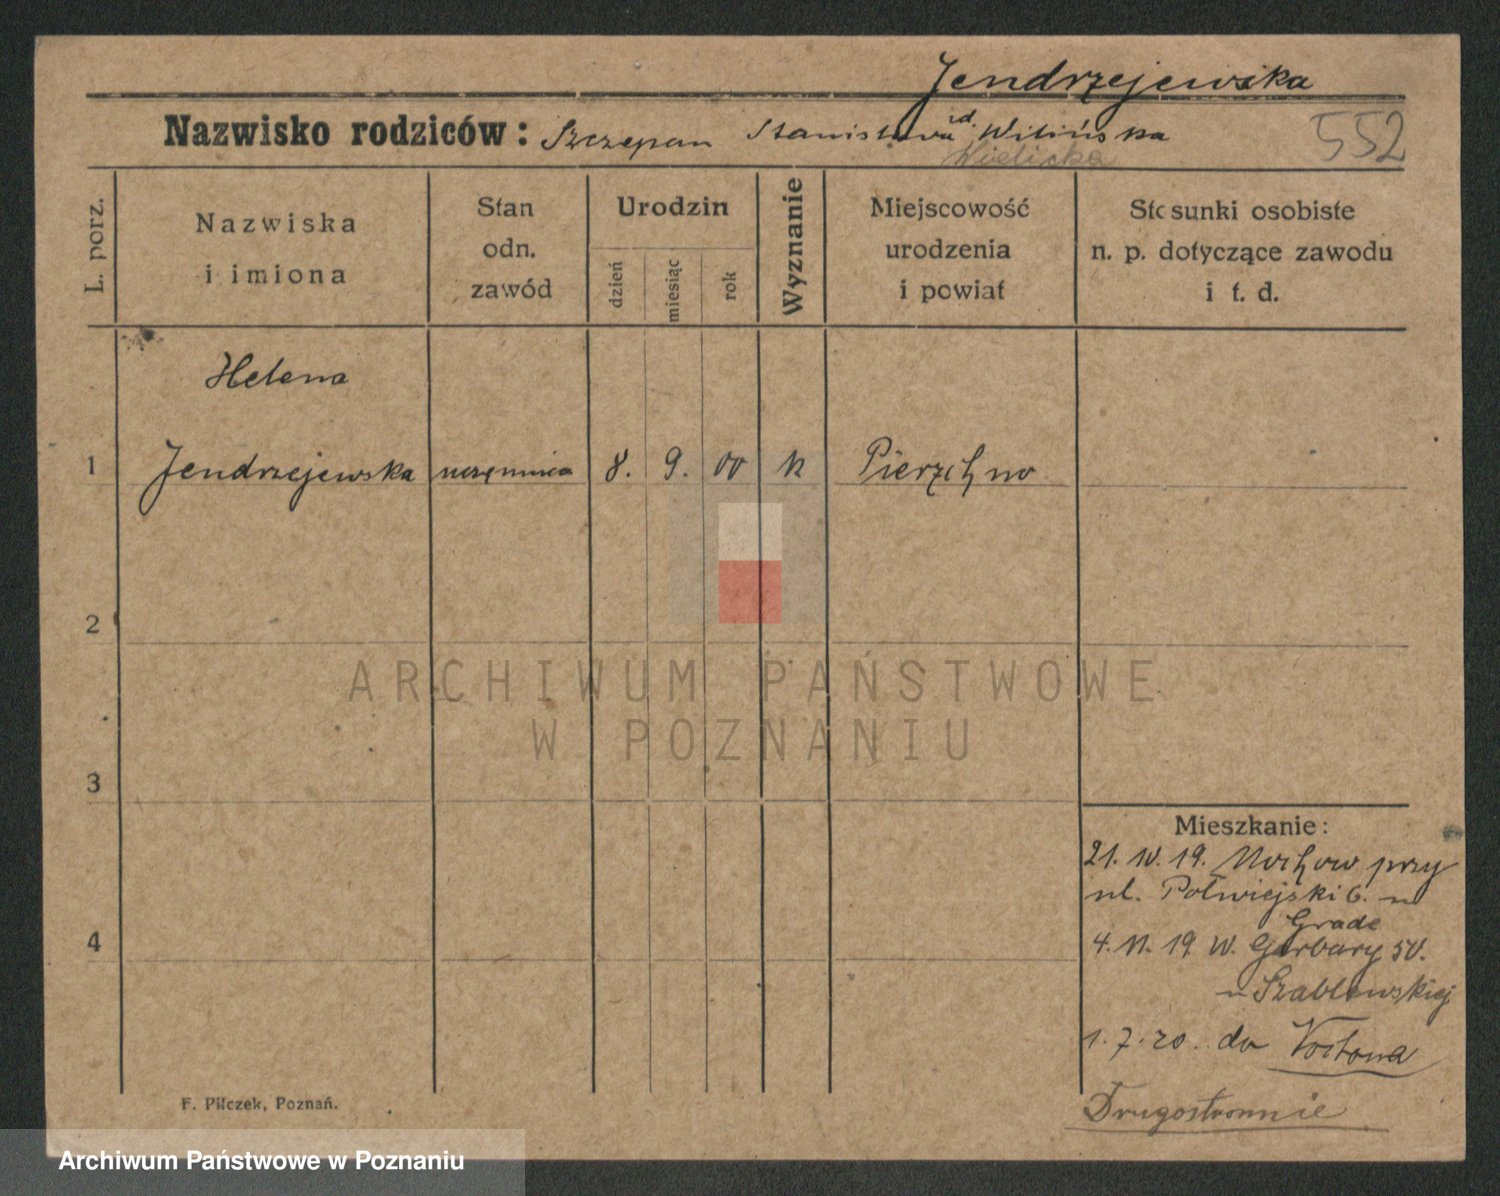 Jendrzejewska
Nazwisko rodziców: Szczepan Stanisława zd. Wilińska
Wielicka
552
L. porz.
Nazwiska
i imiona
Stan
odn.
zawód
Urodzin
dzień
miesiąc
rok
Wyznanie
Miejscowość
urodzenia
i powiat
Stosunki osobiste
n. p. dotyczące zawodu
i t. d.
Helena
1 Jendrzejewska uczennica 8. 9. 00 k Pierzchno
2
3
4
Mieszkanie:
21. IV. 19. przy
ul. Półwiejski 6. u
Grade
4. 11. 19 W. Garbary 50.
u Szablewskiej
1. 7. 20. do
Drugostronnie
F. Pilczek, Poznań.
ARCHIWUM PAŃSTWOWE
W POZNANIU
Archiwum Państwowe w Poznaniu